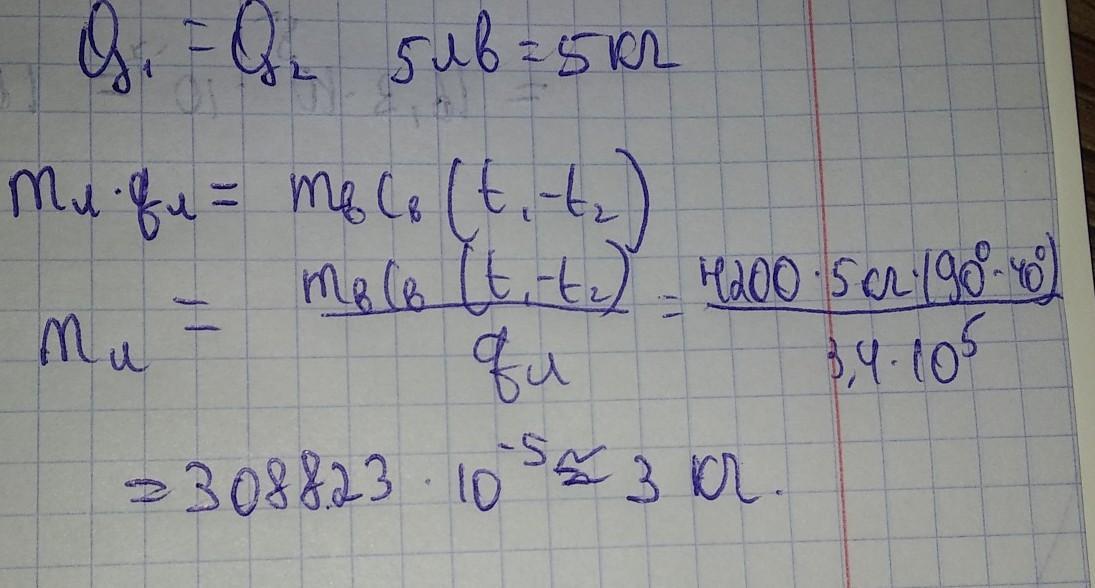 Q₁ = Q₂ 5лв = 5 кг
mл · qл = mвCв (t₁ - t₂)
mл = mвCв (t₁ - t₂) / qл = 4200 · 5кг · (90° - 40°) / 3,4 · 10⁵
= 308823 · 10⁻⁵ ≈ 3 кг.